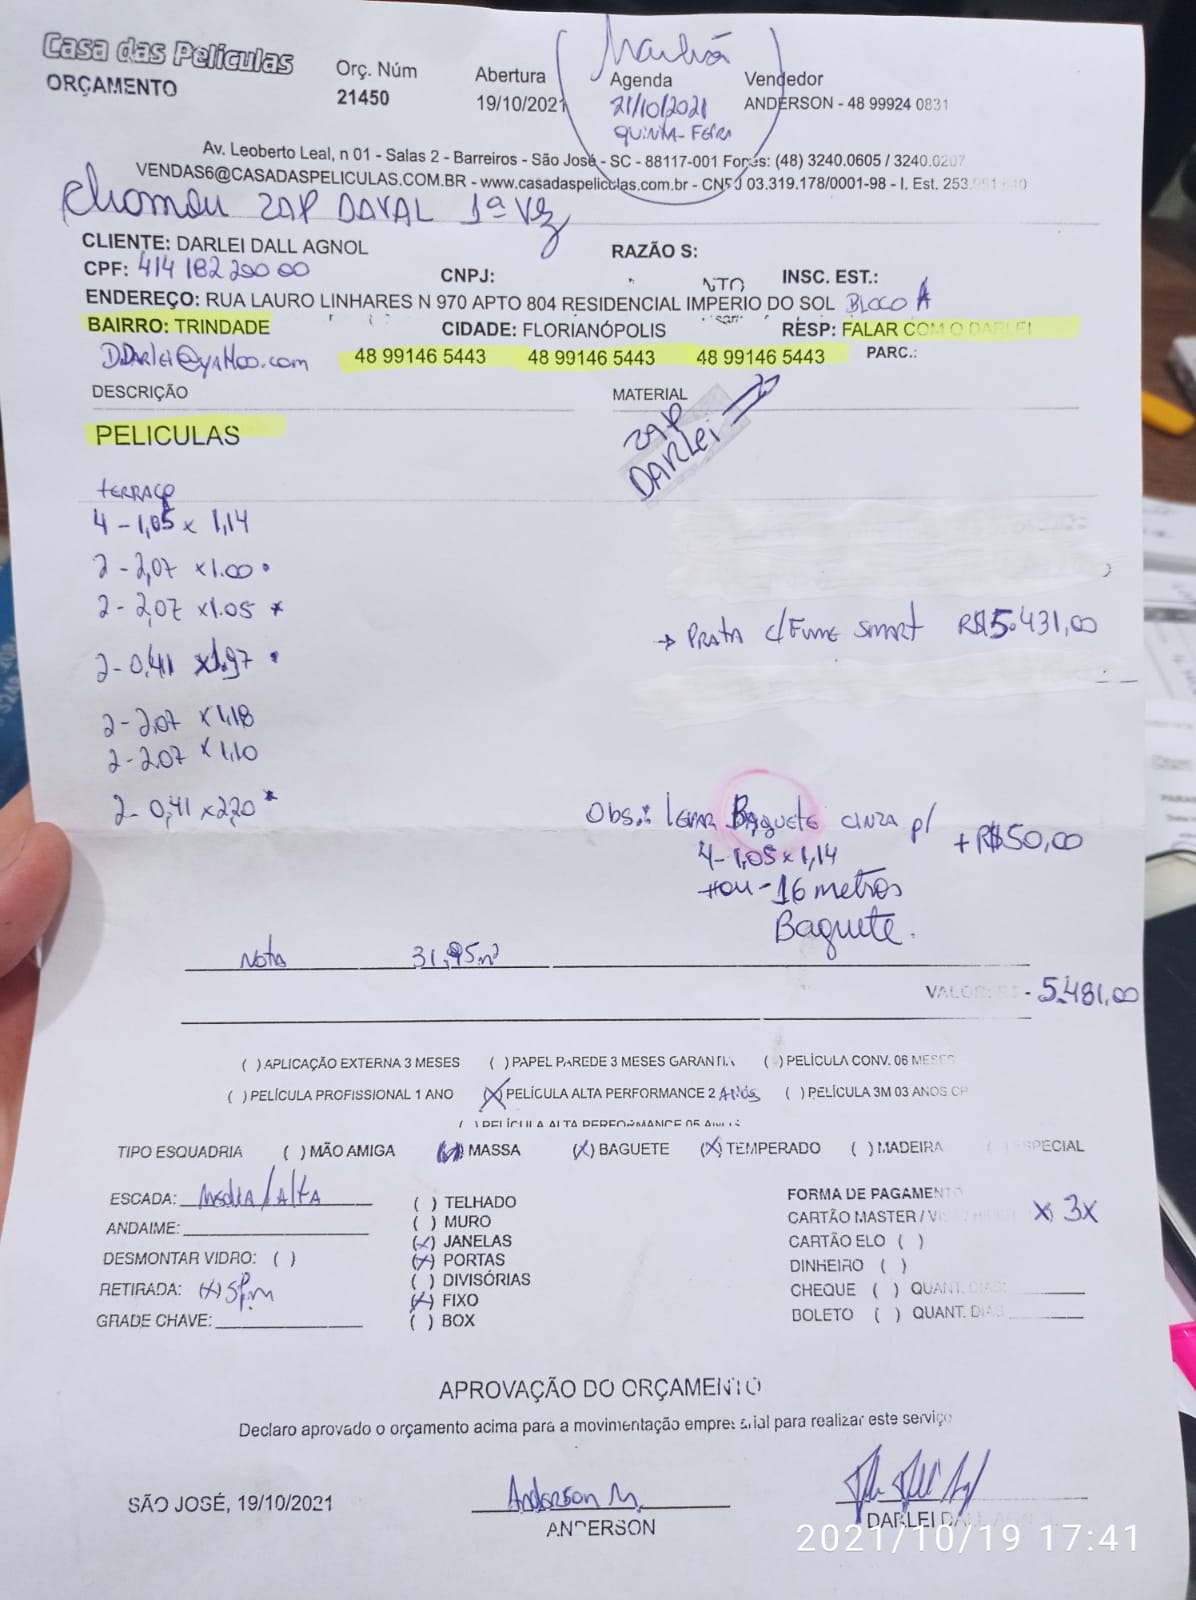 Casa das Películas
ORÇAMENTO
Orç. Núm
21450
Abertura
19/10/2021
Manhã
Agenda
21/10/2021
QUINTA-FEIRA
Vendedor
ANDERSON - 48 99924 0831
Av. Leoberto Leal, n 01 - Salas 2 - Barreiros - São José - SC - 88117-001 Fones: (48) 3240.0605 / 3240.0207
VENDAS6@CASADASPELICULAS.COM.BR - www.casadaspeliculas.com.br - CNPJ 03.319.178/0001-98 - I. Est. 253.
Chamou ZAP DAVAL 1ª VEZ
CLIENTE: DARLEI DALL AGNOL RAZÃO S:
CPF: 414 182 200 00 CNPJ: INSC. EST.:
ENDEREÇO: RUA LAURO LINHARES N 970 APTO 804 RESIDENCIAL IMPERIO DO SOL BLOCO A
BAIRRO: TRINDADE CIDADE: FLORIANÓPOLIS RESP: FALAR COM O DARLEI
DDarlei@yahoo.com 48 99146 5443 48 99146 5443 48 99146 5443 PARC.:
DESCRIÇÃO MATERIAL
PELICULAS
ZAP
DARLEI
TERRAÇO
4 - 1,05 x 1,14
2 - 2,07 x 1.00 •
2 - 2,07 x 1.05 *
→ PRATA c/ FUME SMART R$5.431,00
2 - 0,41 x 1.97 •
2 - 2,07 x 1,18
2 - 2,07 x 1,10
2 - 0,41 x 2,20 *
Obs.: LEVAR BAQUETE CINZA p/ + R$50,00
4 - 1,05 x 1,14
- 16 metros
Baquete.
Nota 31,95m²
VALOR: R$ - 5.481,00
( ) APLICAÇÃO EXTERNA 3 MESES ( ) PAPEL PAREDE 3 MESES GARANTIA ( ) PELÍCULA CONV. 06 MESES
( ) PELÍCULA PROFISSIONAL 1 ANO (X) PELÍCULA ALTA PERFORMANCE 2 ANOS ( ) PELÍCULA 3M 03 ANOS CP
( ) PELÍCULA ALTA PERFORMANCE 05 ANOS
TIPO ESQUADRIA ( ) MÃO AMIGA MASSA (X) BAGUETE (X) TEMPERADO ( ) MADEIRA ( ) ESPECIAL
ESCADA: Media/Alta
ANDAIME:
DESMONTAR VIDRO: ( )
RETIRADA: (X) SP.m
GRADE CHAVE:
( ) TELHADO
( ) MURO
(X) JANELAS
(X) PORTAS
( ) DIVISÓRIAS
(X) FIXO
( ) BOX
FORMA DE PAGAMENTO
CARTÃO MASTER / X 3x
CARTÃO ELO ( )
DINHEIRO ( )
CHEQUE ( ) QUANT. DIAS:
BOLETO ( ) QUANT. DIAS
APROVAÇÃO DO ORÇAMENTO
Declaro aprovado o orçamento acima para a movimentação empresarial para realizar este serviço
SÃO JOSÉ, 19/10/2021
Anderson M.
ANDERSON
DARLEI DALL AGNOL
2021/10/19 17:41